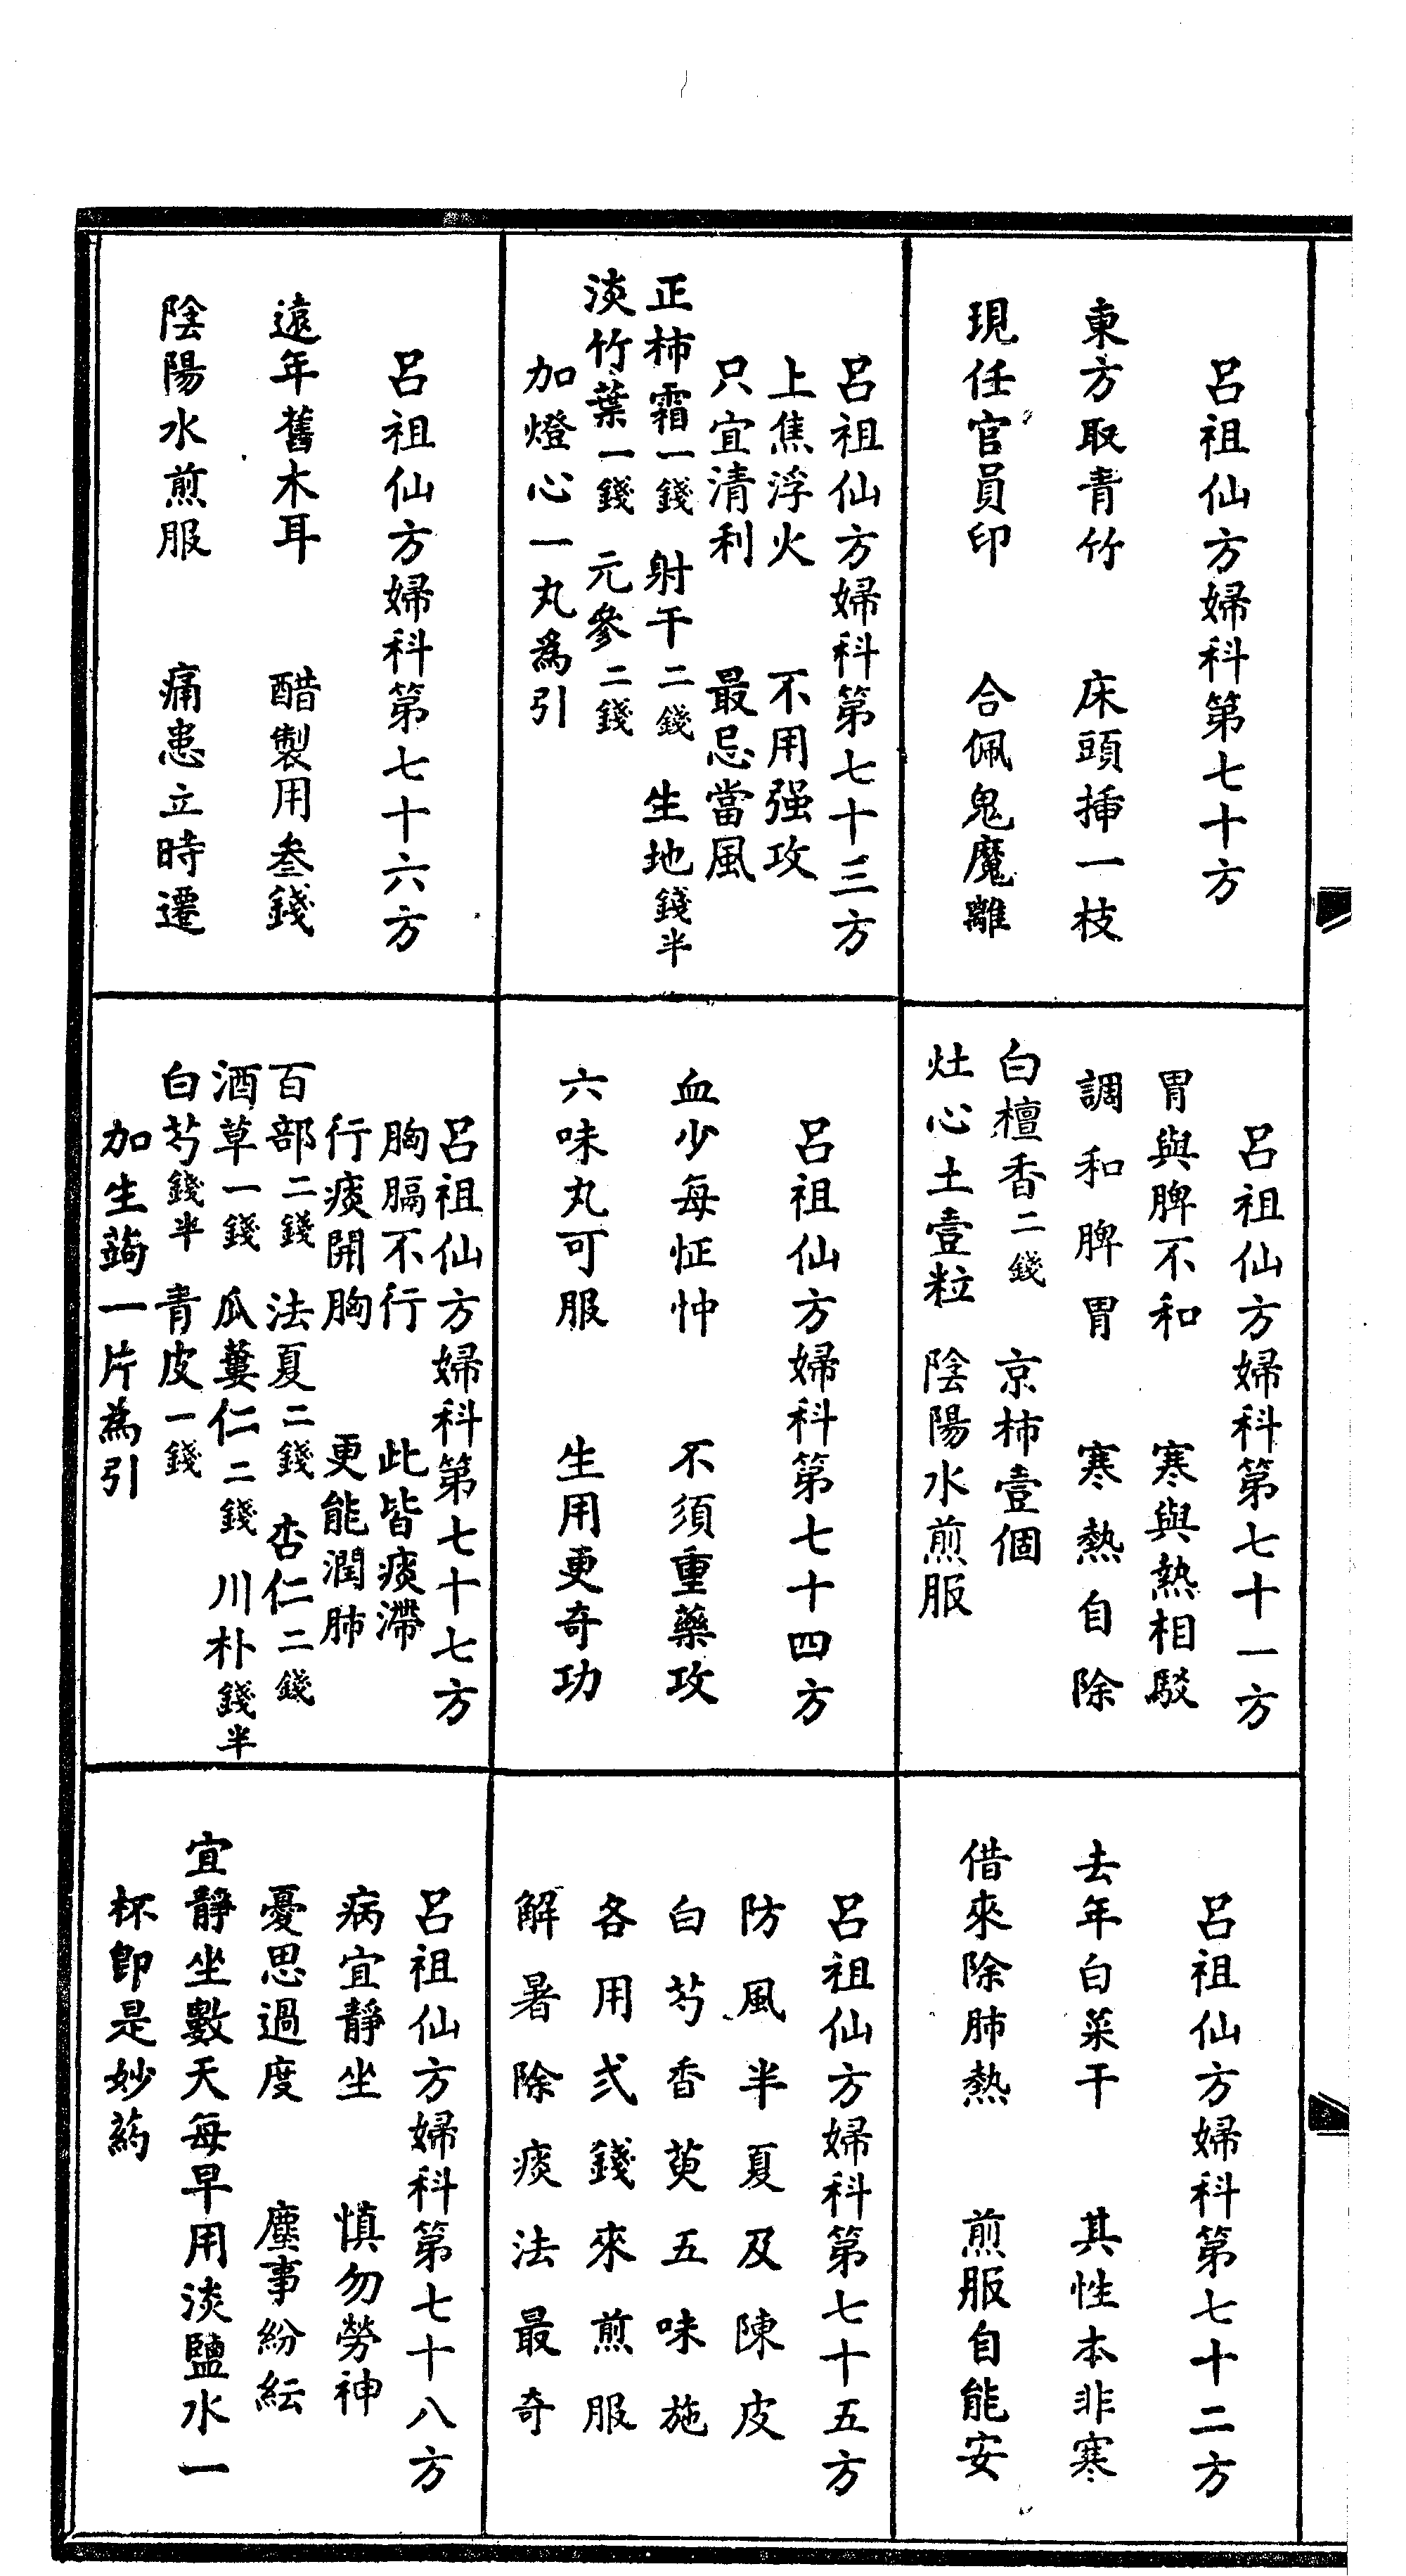 呂祖仙方婦科第七十方
東方取青竹　床頭揷一枝
現任官員印　合佩鬼魔離
呂祖仙方婦科第七十一方
胃與脾不和　寒與熱相駁
調和脾胃　寒熱自除
白檀香二錢　京柿壹個
灶心土壹粒　陰陽水煎服
呂祖仙方婦科第七十二方
去年白菜干　其性本非寒
借來除肺熱　煎服自能安
呂祖仙方婦科第七十三方
上焦浮火　不用强攻
只宜清利　最忌當風
正柿霜一錢　射干二錢　生地錢半
淡竹葉一錢　元參二錢
加燈心一丸爲引
呂祖仙方婦科第七十四方
血少每怔忡　不須重藥攻
六味丸可服　生用更奇功
呂祖仙方婦科第七十五方
防風半夏及陳皮
白芍香萸五味施
各用弍錢來煎服
解暑除痰法最奇
呂祖仙方婦科第七十六方
遠年舊木耳　醋製用叁錢
陰陽水煎服　痛患立時遷
呂祖仙方婦科第七十七方
胸膈不行　此皆痰滯
行痰開胸　更能潤肺
百部二錢　法夏二錢　杏仁二錢
酒草一錢　瓜蔞仁二錢　川朴錢半
白芍錢半　青皮一錢
加生蒟一片為引
呂祖仙方婦科第七十八方
病宜靜坐　慎勿勞神
憂思過度　塵事紛紜
宜靜坐數天每早用淡鹽水一
杯卽是妙葯